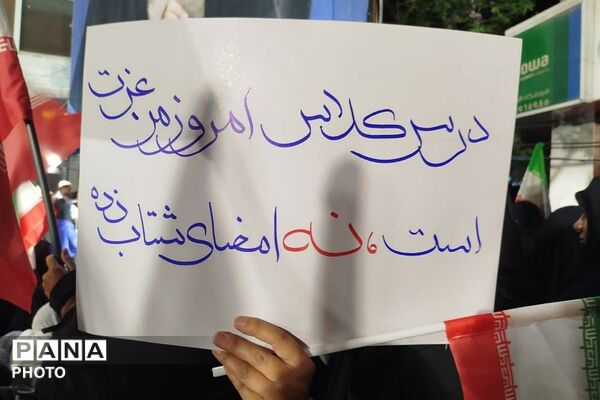 درس کلاس امروز من عزت
است، نه امضای شتاب زده
PANA
PHOTO